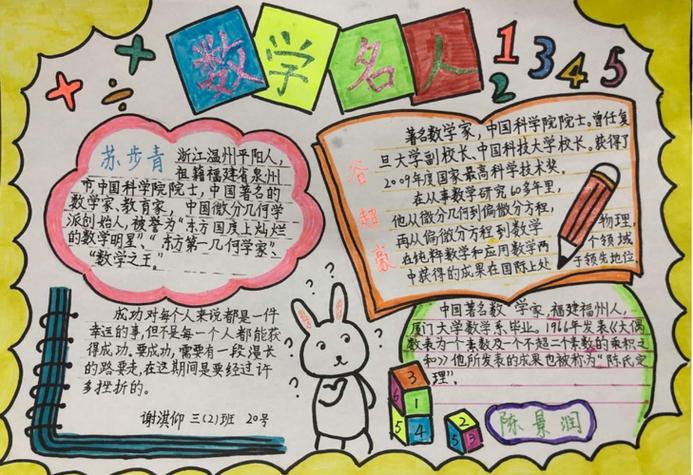 数学名人
1 2 3 4 5
苏步青
浙江温州平阳人，
祖籍福建省泉州
市，中国科学院院士，中国著名的
数学家、教育家，中国微分几何学
派创始人，被誉为“东方国度上灿烂
的数学明星”“东方第一几何学家”、
“数学之王”。
谷超豪
著名数学家，中国科学院院士。曾任复
旦大学副校长、中国科技大学校长。获得了
2009年度国家最高科学技术奖。
在从事数学研究60多年里，
他从微分几何到偏微分方程，
再从偏微分方程到数学物理，
在纯粹数学和应用数学两个领域
中获得的成果在国际上处于领先地位
成功对每个人来说都是一件
幸运的事，但不是每一个人都能获
得成功。要成功，需要有一段漫长
的路要走，在这期间是要经过许
多挫折的。
谢淇仰 三(2)班 20号
中国著名数学家，福建福州人，
厦门大学数学系毕业。1966年发表《大偶
数表为一个素数及一个不超二个素数的乘积之
和》他所发表的成果也被称为“陈氏定
理”。
陈景润
3
6 1
5 4
2
5 3